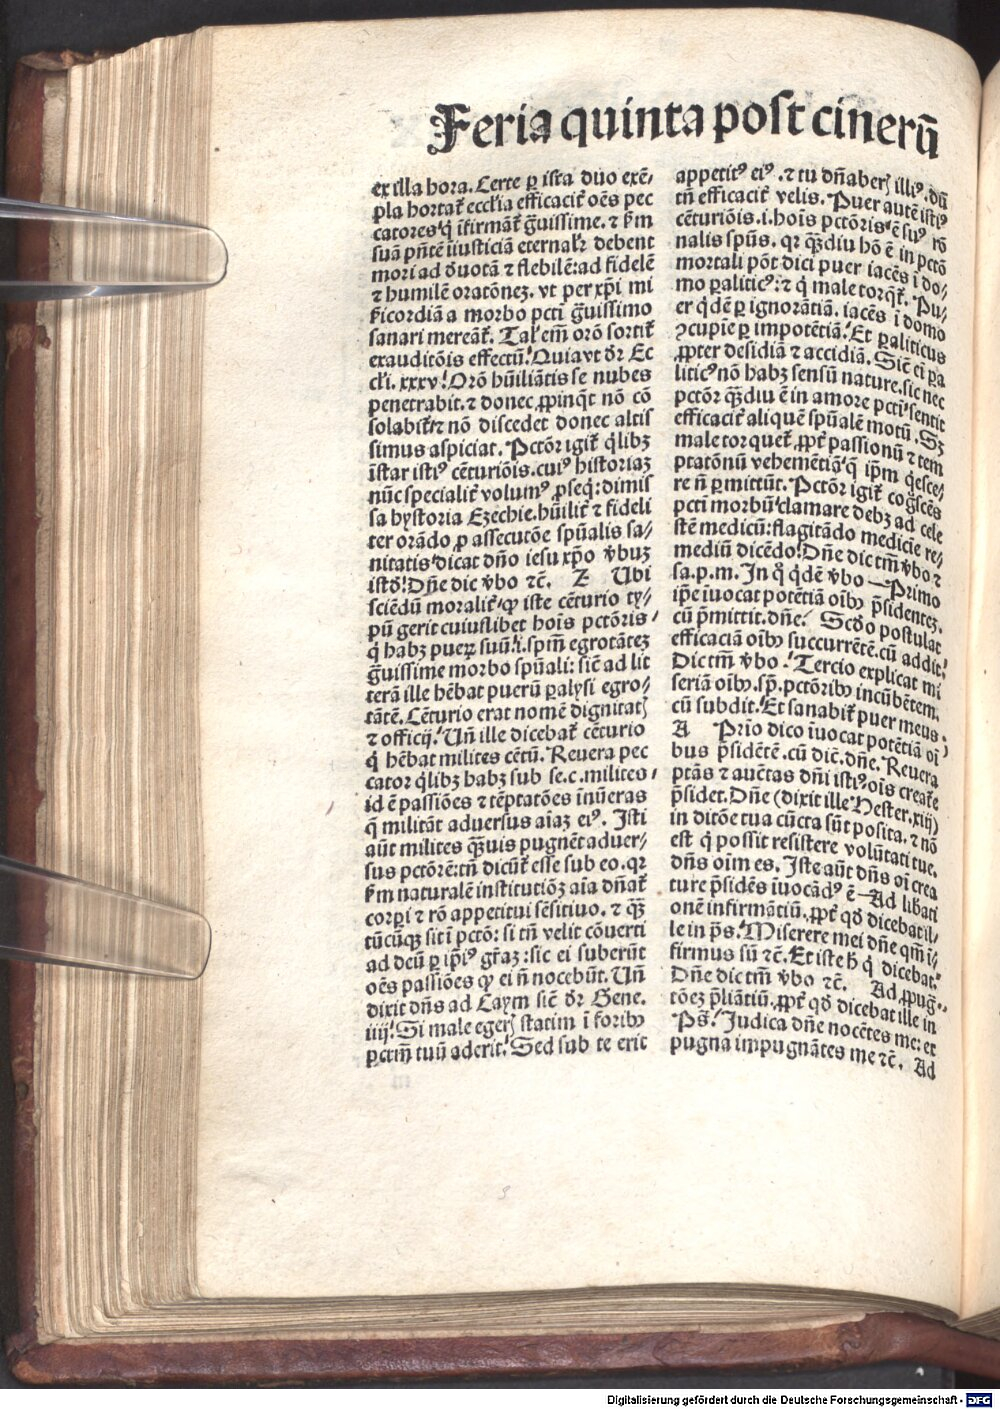 Feria quinta post cinerū
ex illa hora. Certe ꝑ ista duo exē⸗
pla hortat᷑ eccľia efficacit᷑ oēs pec
catores q̇ īfirmāt᷑ g̈uissime. ⁊ ẜm
suā pn̄tē iusticiā eternaľr debent
mori ad d̓uotā ⁊ flebilē: ad fidelē
⁊ humilē oratōneꝫ. vt per xp̄i mi
ẜicordiā a morbo pcti g̈uissimo
sanari mereāt᷑. Taľ em̄ orō sortit᷑
exauditōis effectū. Quia vt d̓r Ec
cľi. xxxv. Orō hūiliātis se nubes
penetrabit. ⁊ donec ꝓpinq̄t nō cō
solabit᷑ ⁊ nō discedet donec altis
simus aspiciat. Pctōr igit᷑ q̇libꝫ
īstar istiꝰ cēturiōis. cuiꝰ historiaꝫ
nūc specialit᷑ volumꝰ ꝓseq̇: dimis
sa hystoria Ezechie. hūilit᷑ ⁊ fideli
ter orādo ꝓ assecutōe spūalis sa⸗
nitatis dicat dn̄o iesu xp̄o v̓buꝫ
istd̓. Dn̄e dic v̓bo ⁊c̄. Z Ubi
sciēdū moralit᷑ ꝙ iste cēturio ty⸗
pū gerit cuiuslibet hoīs pctōris
q̇ habꝫ pueꝝ suū. i. spm̄ egrotāteꝫ
g̈uissime morbo spūali: sic̄ ad lit
terā ille hēbat puerū ꝑalysi egro⸗
tātē. Cēturio erat nomē dignitatꝭ
⁊ officij. Un̄ ille dicebat᷑ cēturio
q̇ hēbat milites cētū. Revera pec
cator q̇libꝫ habꝫ sub se. c. milites
id ē passiōes ⁊ tēptatōes īnūeras
q̄ militāt adversus aīaꝫ eiꝰ. Isti
aūt milites q̄ꝫuis pugnēt aduer⸗
sus pctōrē: tn̄ dicūt᷑ esse sub eo. qꝛ
ẜm naturalē institutiōꝫ aīa dn̄at᷑
corꝑi ⁊ rō appetitui sēsitiuo. ⁊ q̄ꝫ
tūcūq̨ sit ī pctō: si tn̄ velit cōuerti
ad deū ꝑ ip̄iꝰ gr̄aꝫ: sic ei suberūt
oēs passiōes ꝙ ei n̄ nocebūt. Un̄
dixit dn̄s ad Caym sic̄ d̓r Gene.
iiij. Si male egerꝭ statim ī forib⁹
pctm̄ tuū aderit. Sed sub te erit
appetitꝰ eiꝰ. ⁊ tu dn̄aberꝭ illiꝰ. dū
tn̄ efficacit᷑ velis. Puer autē istiꝰ
cēturiōis. i. hoīs pctōris ē suꝰ rō
nalis spūs. qꝛ q̄ꝫdiu hō ē in pctō
mortali pōt dici puer iacēs ī do⸗
mo ꝑaliticꝰ: ⁊ q̇ male torq̄t᷑. Pu⸗
er q̇dē ꝑ ignorātiā. iacēs ī domo
ꝯcupie ꝑ impotētiā. Et ꝑaliticus
ꝓpter desidiā ⁊ accidiā. Sic̄ ei ꝑa
liticꝰ nō habꝫ sensū nature. sic nec
pctōr q̄ꝫdiu ē in amore pcti sentit
efficacit᷑ aliquē spūalē motū. Sꝫ
male torquet᷑ ꝓpt᷑ passionū ⁊ tem
ptatōnū vehemētiā q̄ ip̄m q̇esce⸗
re n̄ ꝑmittūt. Pctōr igit᷑ cog̈scēs
pcti morbū clamare debꝫ ad cele
stē medicū: flagitādo medicīe re⸗
mediū dicēdo. Dn̄e dic tm̄ v̓bo ⁊
sa. p. m. In q̊ q̇dē v̓bo — Primo
ip̄e īuocat potētiā oīb⁹ p̄sidenteꝫ.
cū p̄mittit. dn̄e. Scd̓o postulat
efficaciā oīb⁹ succurrētē. cū addit.
Dic tm̄ v̓bo. Tercio explicat mi
seriā oīb⁹. sp̄. pctōrib⁹ incūbētem.
cū subdit. Et sanabit᷑ puer meus.
A Prīo dico īuocat potētiā oī
bus p̄sidētē. cū dic̄. dn̄e. Revera
ptās ⁊ auc̄tas dn̄i istiꝰ oīs creat᷑e
p̄sidet. Dn̄e (dixit ille Hester. xiij)
in ditōe tua cūcta sūt posita. ⁊ nō
est q̇ possit resistere volūtati tue.
dn̄s oīm es. Iste aūt dn̄s oī crea
ture p̄sidēs īuocādꝰ ē — Ad libati
onē infirmātiū. ꝓpt᷑ qd̓ dicebat il⸗
le in p̄s. Miserere mei dn̄e qm̄ ī⸗
firmus sū ⁊c̄. Et iste h̓ q̇ dicebat.
Dn̄e dic tm̄ v̓bo ⁊c̄. Ad ꝓpug̈⸗
tōeꝫ p̄liātiū. ꝓpt᷑ qd̓ dicebat ille in
Ps̄. Judica dn̄e nocētes me: ex
pugna impugnātes me ⁊c̄. Ad
Digitalisierung gefördert durch die Deutsche Forschungsgemeinschaft - DFG